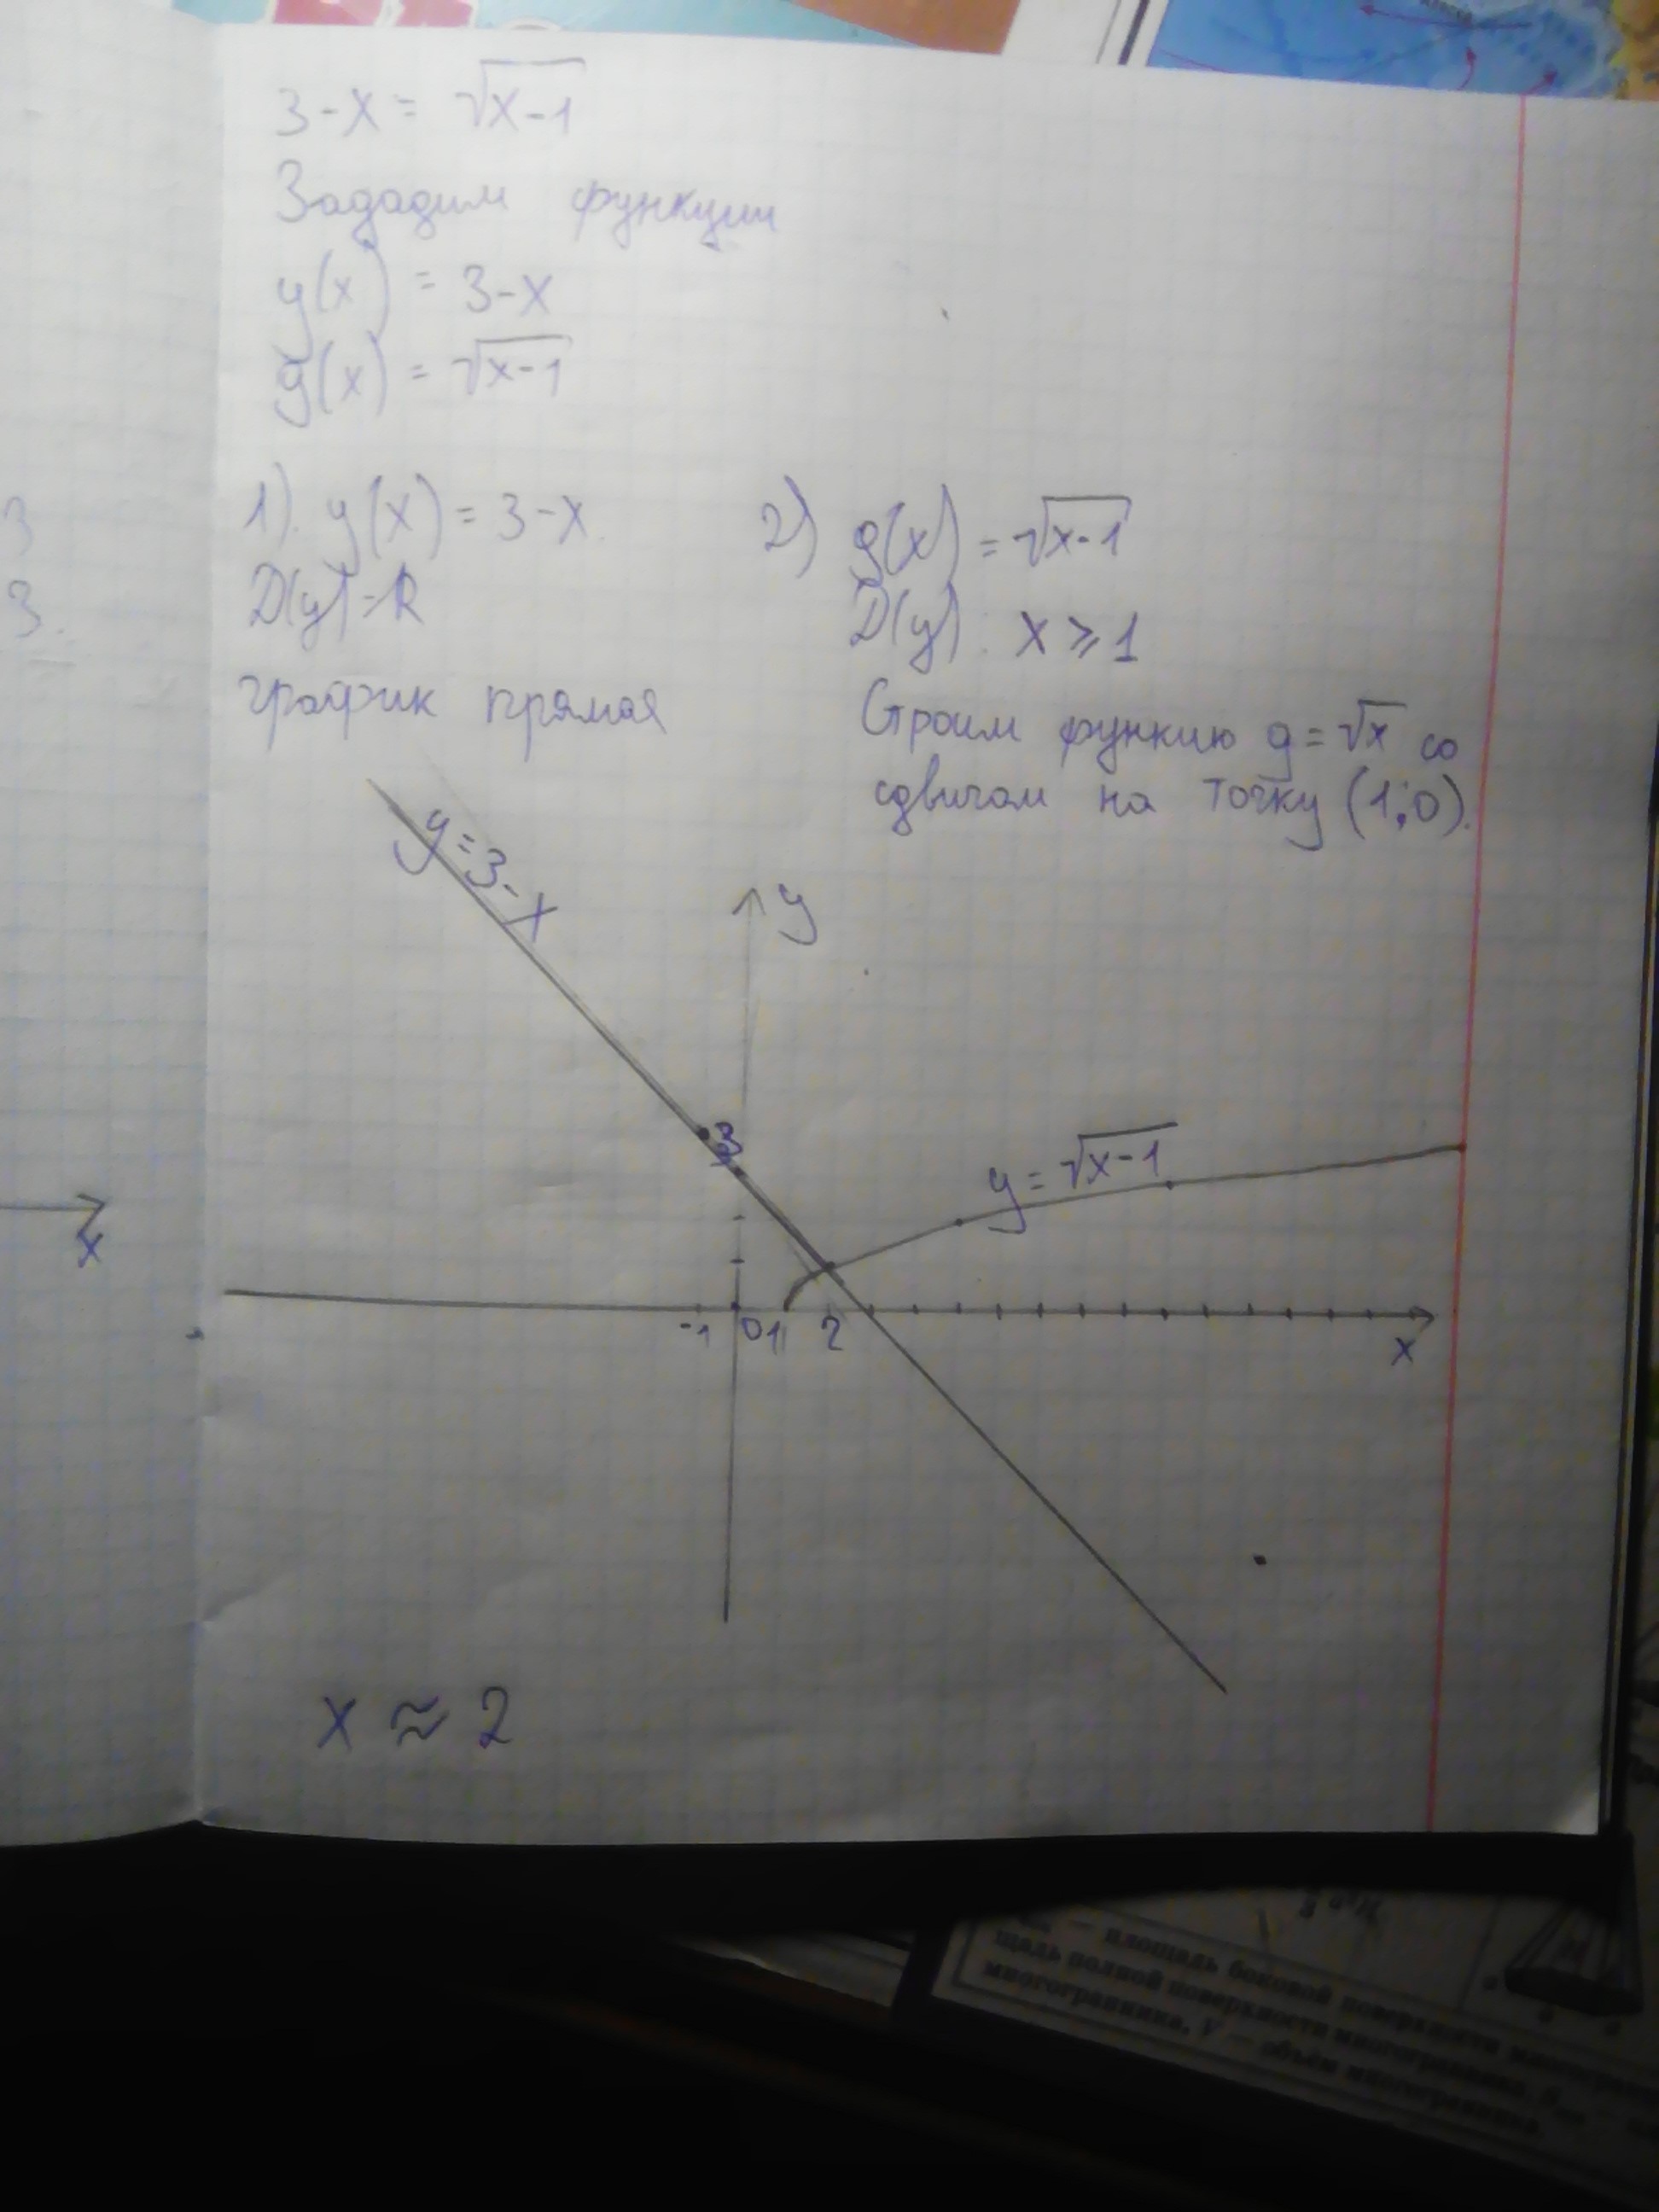 3-x = √x-1
Зададим функции
y(x) = 3-x
g(x) = √x-1
3
3.
1). y(x) = 3-x.
D(y)=R
график прямая
2) g(x) = √x-1
D(y): x ⩾ 1
Строим функию g = √x со
сдвигом на точку (1;0).
y=3-x
y
3
y = √x-1
-1 0 1 2
x
x
x ≈ 2
— площадь боковой поверхности
щадь полной поверхности многогранника,
многогранника, V — объём многогранника.